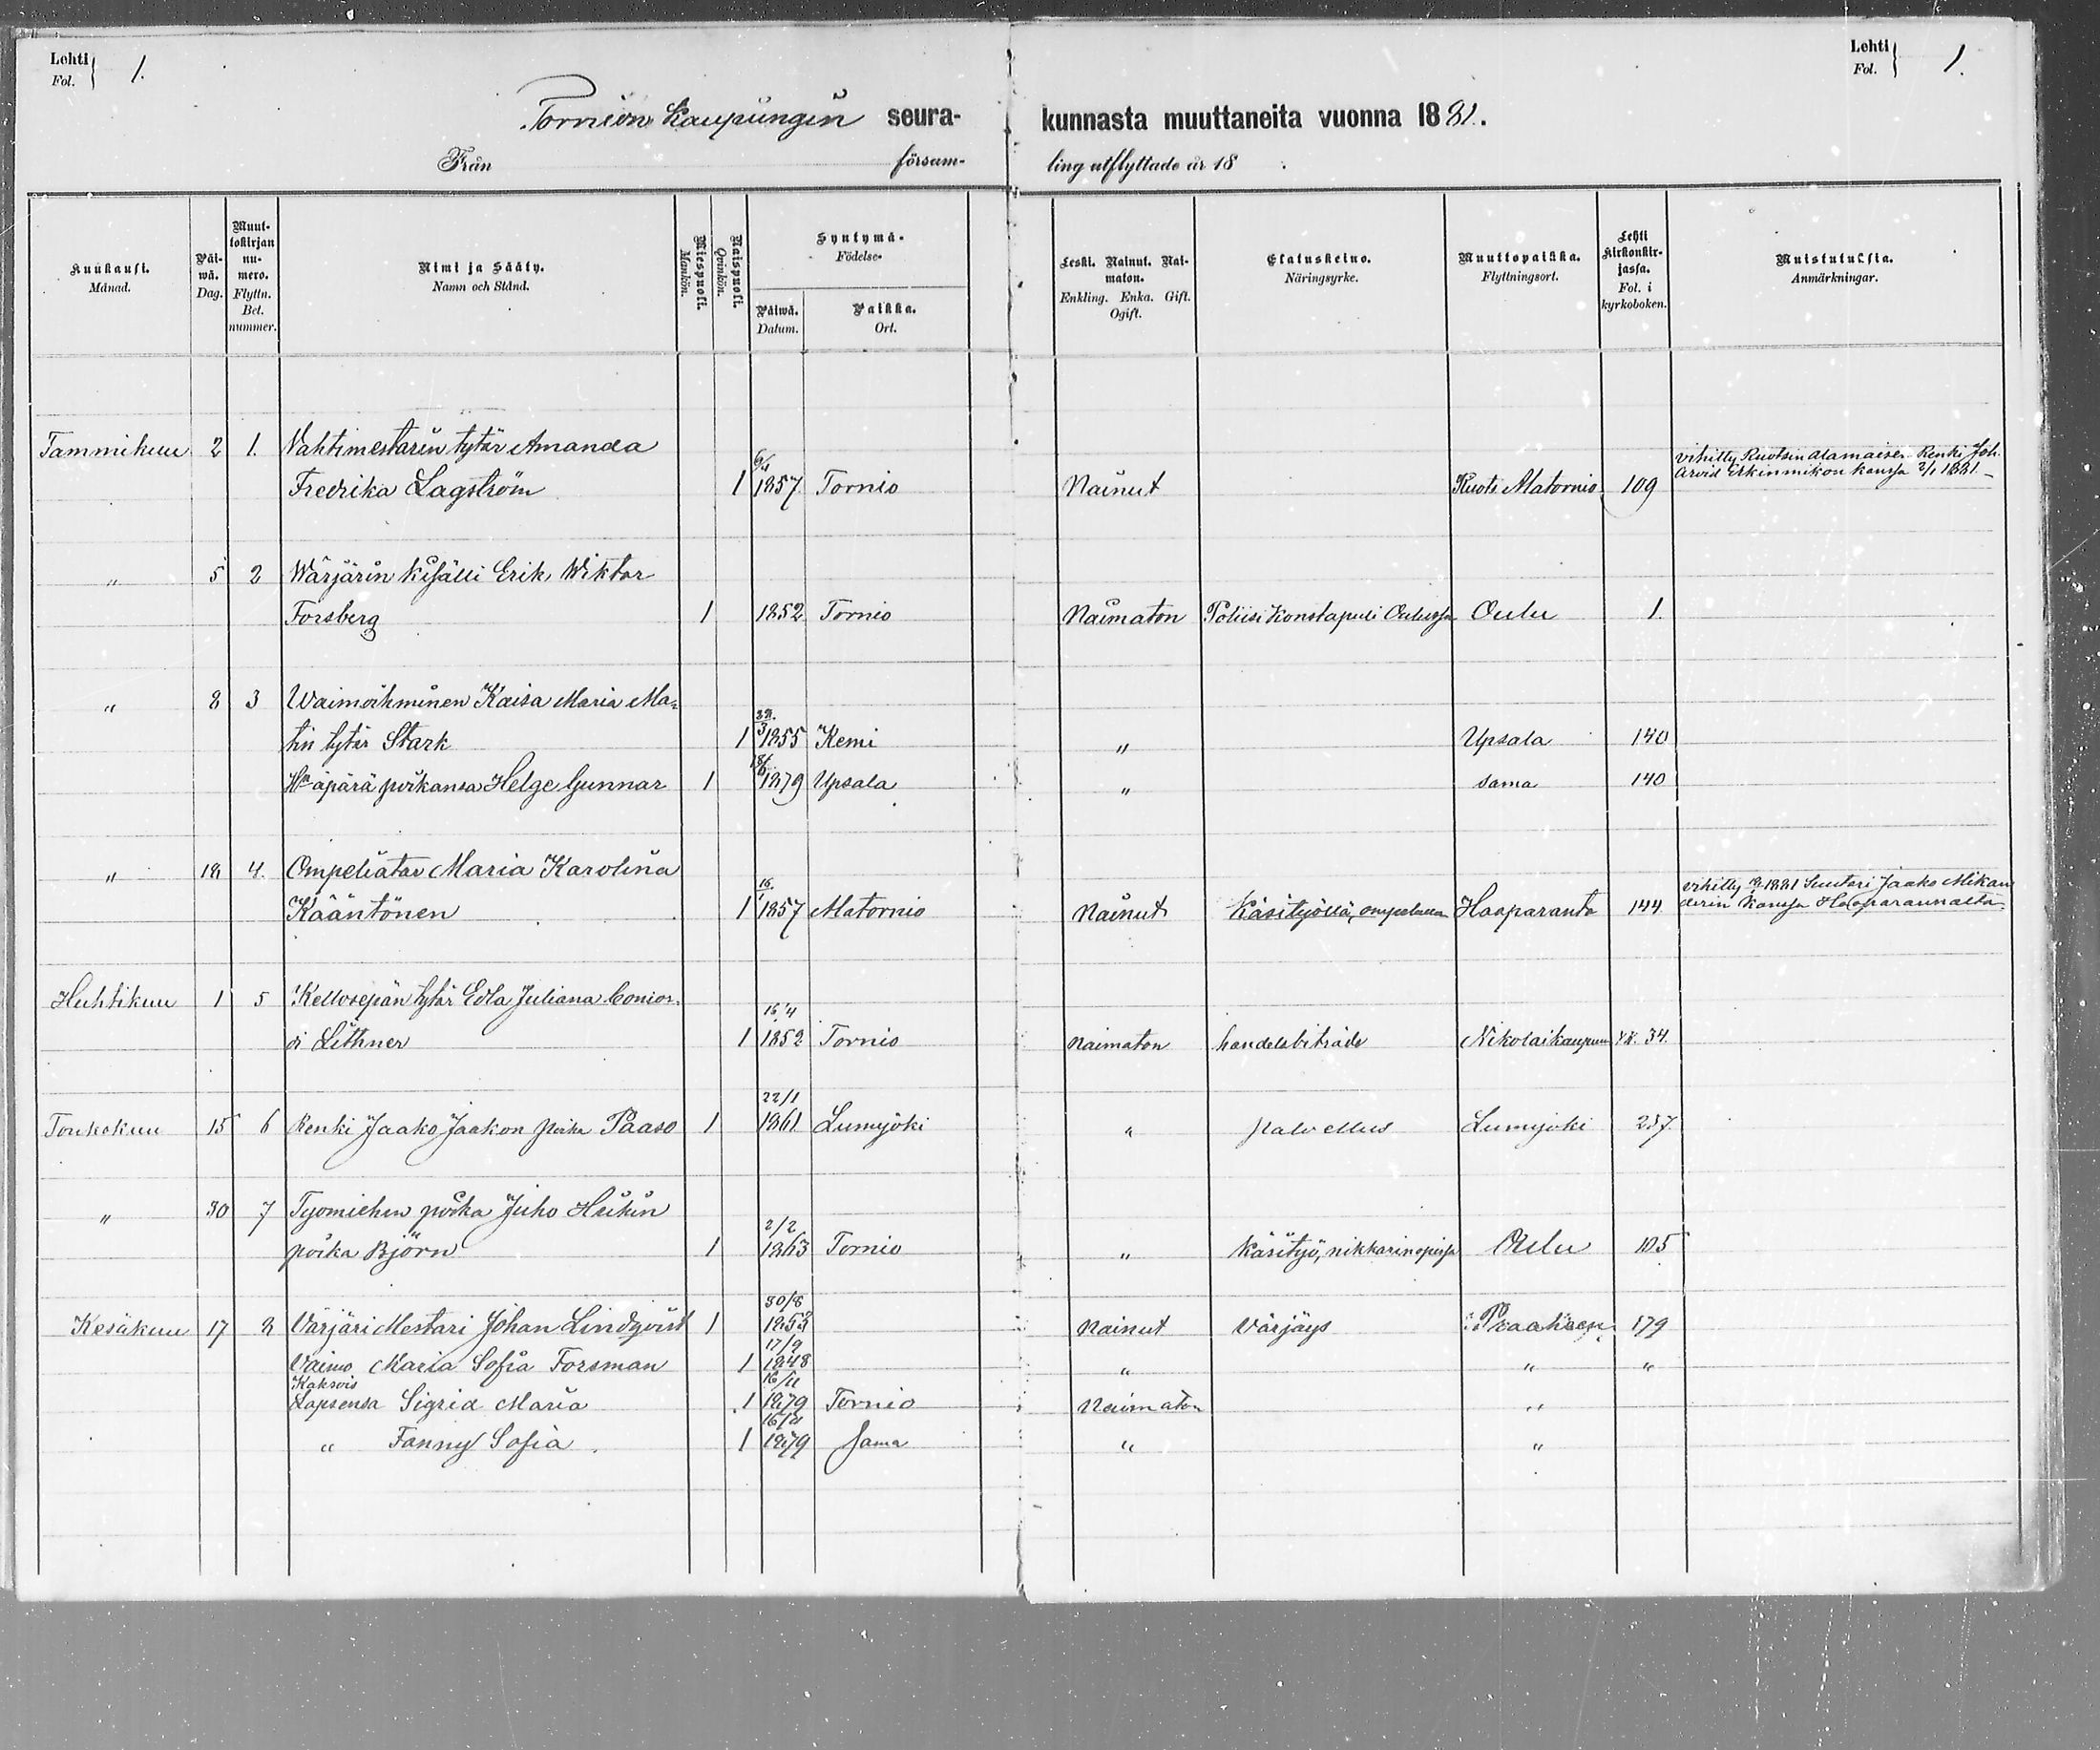 Lehti Fol. 1. Lehti Fol. 1.
Tornion Kaupungin seura- kunnasta muuttaneita vuonna 1881.
Från försam- ling utflyttade år 18 .
Kuukausi. Månad. Päi-wä. Dag. Muut-tokirjan nu-mero. Flyttn. Bet. nummer. Nimi ja Sääty. Namn och Stånd. Miespuoli. Mankön. Naispuoli. Qvinkön. Syntymä- Födelse- Päiwä. Datum. Paikka. Ort. Leski. Nainut. Nai-maton. Enkling. Enka. Gift. Ogift. Elatuskeino. Näringsyrke. Muuttopaikka. Flyttningsort. Lehti kirkonkir-jassa. Fol. i kyrkoboken. Muistutuksia. Anmärkningar.
Tammikuu 2 1. Vahtimestarin tytär Amanda vihitty Ruotsin alamaisen Renki Joh.
Fredrika Lagström 1 1857 Tornio Nainut Ruots Alatornio 109 Arvid Erkinmikon kanssa 2/1 1881.
" 5 2 Wärjärin kisälli Erik Wiktor
Forsberg 1 1852 Tornio Naimaton Poliisi Konstapuli Oulussa Oulu 1.
" 8 3 Waimoihminen Kaisa Maria Ma-
tin tytär Stark 1 1855 Kemi " Upsala 140
äpärä poikansa Helge Gunnar 1 1879 Upsala " sama 140
" 18 4. Ompeliatar Maria Karolina vihitty 1881 Suutari Jaako Mikan
Kääntönen 1 1857 Alatornio Nainut Käsityöllä, ompelulla Haaparanta 144 derin kanssa Haaparannalta.
Huhtikuu 1 5 Kellosepän tytär Edla Juliana Concor- 15/4
di Lithner 1 1852 Tornio naimaton handelsbiträde Nikolaikaupun 34.
22/1
Toukokuu 15 6 Renki Jaako Jaakon poika Paaso 1 1861 Lumijoki " palvellus Lumijoki 237.
" 30 7 Työmiehen poika Juho Heikin 2/2
poika Björn 1 1863 Tornio " Käsityö, nikkarinopissa Oulu 105
30/8
Kesäkuu 17 8 Värjäri Mestari Johan Lindqvist 1 1853 Nainut Värjäys Praaheen 179
17/9
Vaimo Maria Sofia Forsman 1 1848 " " "
Kaksois 16/11
Lapsensa Sigrid Maria 1 1879 Tornio Naimaton "
16/11
" Fanny Sofia 1 1879 Sama " "